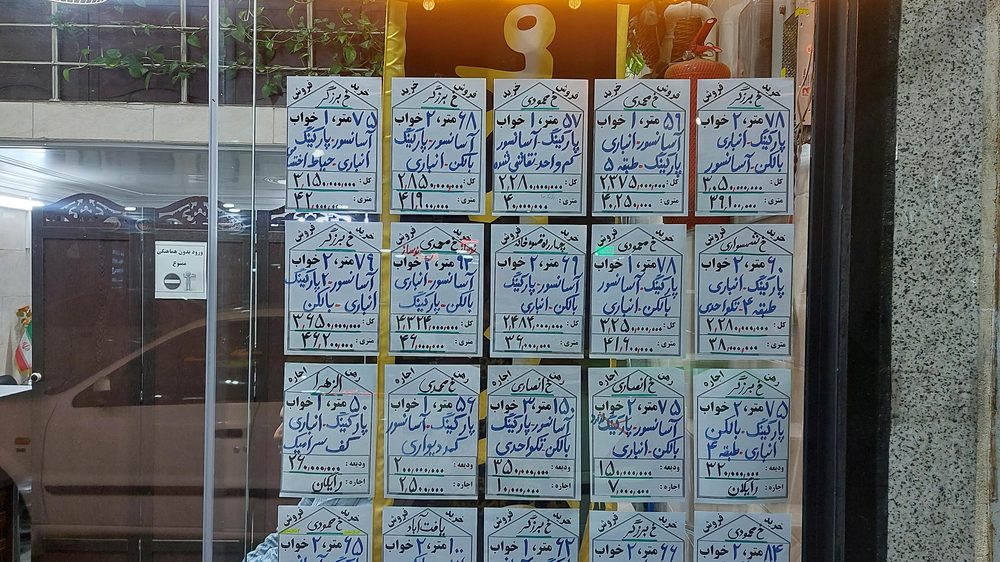 ورود بدون هماهنگی
ممنوع
خرید فروش
خ برزگر
۷۸ متر، ۲ خواب
پارکینگ - انباری
بالکن - آسانسور
کل: ۳,۰۵۰,۰۰۰,۰۰۰
متری: ۳۹,۱۰۰,۰۰۰
خرید فروش
خ محمدی
۵۹ متر، ۱ خواب
آسانسور - انباری
پارکینگ - طبقه ۵
کل: ۲۳۷۵,۰۰۰,۰۰۰
متری: ۴,۲۵۰,۰۰۰
خرید فروش
خ محمودی
۵۷ متر، ۱ خواب
پارکینگ - آسانسور
کم واحد نقاشی شده
کل: ۲,۲۸۰,۰۰۰,۰۰۰
متری: ۴۰,۰۰۰,۰۰۰
خرید فروش
خ برزگر
۶۸ متر، ۲ خواب
آسانسور - پارکینگ
بالکن - انباری
کل: ۲,۸۵۰,۰۰۰,۰۰۰
متری: ۴۱۹۰۰,۰۰۰
خرید فروش
خ برزگر
۷۵ متر، ۱ خواب
آسانسور - پارکینگ
انباری - حیاط
کل: ۳,۱۵۰,۰۰۰,۰۰۰
متری: ۴۲,۰۰۰,۰۰۰
خ شمشیری
۶۰ متر، ۲ خواب
پارکینگ - انباری
طبقه ۴ - تکواحدی
کل: ۲,۲۸۰,۰۰۰,۰۰۰
متری: ۳۸,۰۰۰,۰۰۰
خ محمودی
۷۸ متر، ۱ خواب
آسانسور - پارکینگ
انباری - بالکن
کل: ۳,۲۵۰,۰۰۰,۰۰۰
متری: ۴۱,۹۰۰,۰۰۰
چهارراه قهوه خانه
۶۹ متر، ۲ خواب
آسانسور - پارکینگ
بالکن - انباری
کل: ۲,۴۸۴,۰۰۰,۰۰۰
متری: ۳۶,۰۰۰,۰۰۰
خ محمدی
۹۴ متر، ۲ خواب
آسانسور - انباری
بالکن - پارکینگ
کل: ۴,۳۲۴,۰۰۰,۰۰۰
متری: ۴۶,۰۰۰,۰۰۰
خ برزگر
۷۹ متر، ۲ خواب
آسانسور - ۲ پارکینگ
انباری - بالکن
کل: ۳,۶۵۰,۰۰۰,۰۰۰
متری: ۴۶۲۰۰,۰۰۰
رهن اجاره
خ برزگر
۷۵ متر، ۲ خواب
پارکینگ - بالکن
انباری - طبقه ۴
ودیعه: ۳۲۰,۰۰۰,۰۰۰
اجاره: رایگان
رهن اجاره
خ انصاری
۷۵ متر، ۲ خواب
آسانسور - پارکینگ
بالکن - انباری
ودیعه: ۱۵۰,۰۰۰,۰۰۰
اجاره: ۷,۰۰۰,۰۰۰
رهن اجاره
خ انصاری
۱۵۰ متر، ۳ خواب
آسانسور - پارکینگ
بالکن - تکواحدی
ودیعه: ۳۵۰,۰۰۰,۰۰۰
اجاره: ۱۰,۰۰۰,۰۰۰
رهن اجاره
خ محمدی
۵۶ متر، ۱ خواب
پارکینگ - آسانسور
کمد دیواری
ودیعه: ۲۰۰,۰۰۰,۰۰۰
اجاره: ۲,۵۰۰,۰۰۰
رهن اجاره
الزهرا
۵۰ متر، ۱ خواب
پارکینگ - انباری
کف سرامیک
ودیعه: ۲۷۰,۰۰۰,۰۰۰
اجاره: رایگان
خرید فروش
خ محمودی
۸۴ متر، ۲ خواب
خرید فروش
خ برزگر
۶۶ متر، ۲ خواب
خرید فروش
خ برزگر
۶۲ متر، ۱ خواب
خرید فروش
یافت آباد
۱۰۰ متر، ۲ خواب
خرید فروش
خ محمودی
۶۵ متر، ۲ خواب